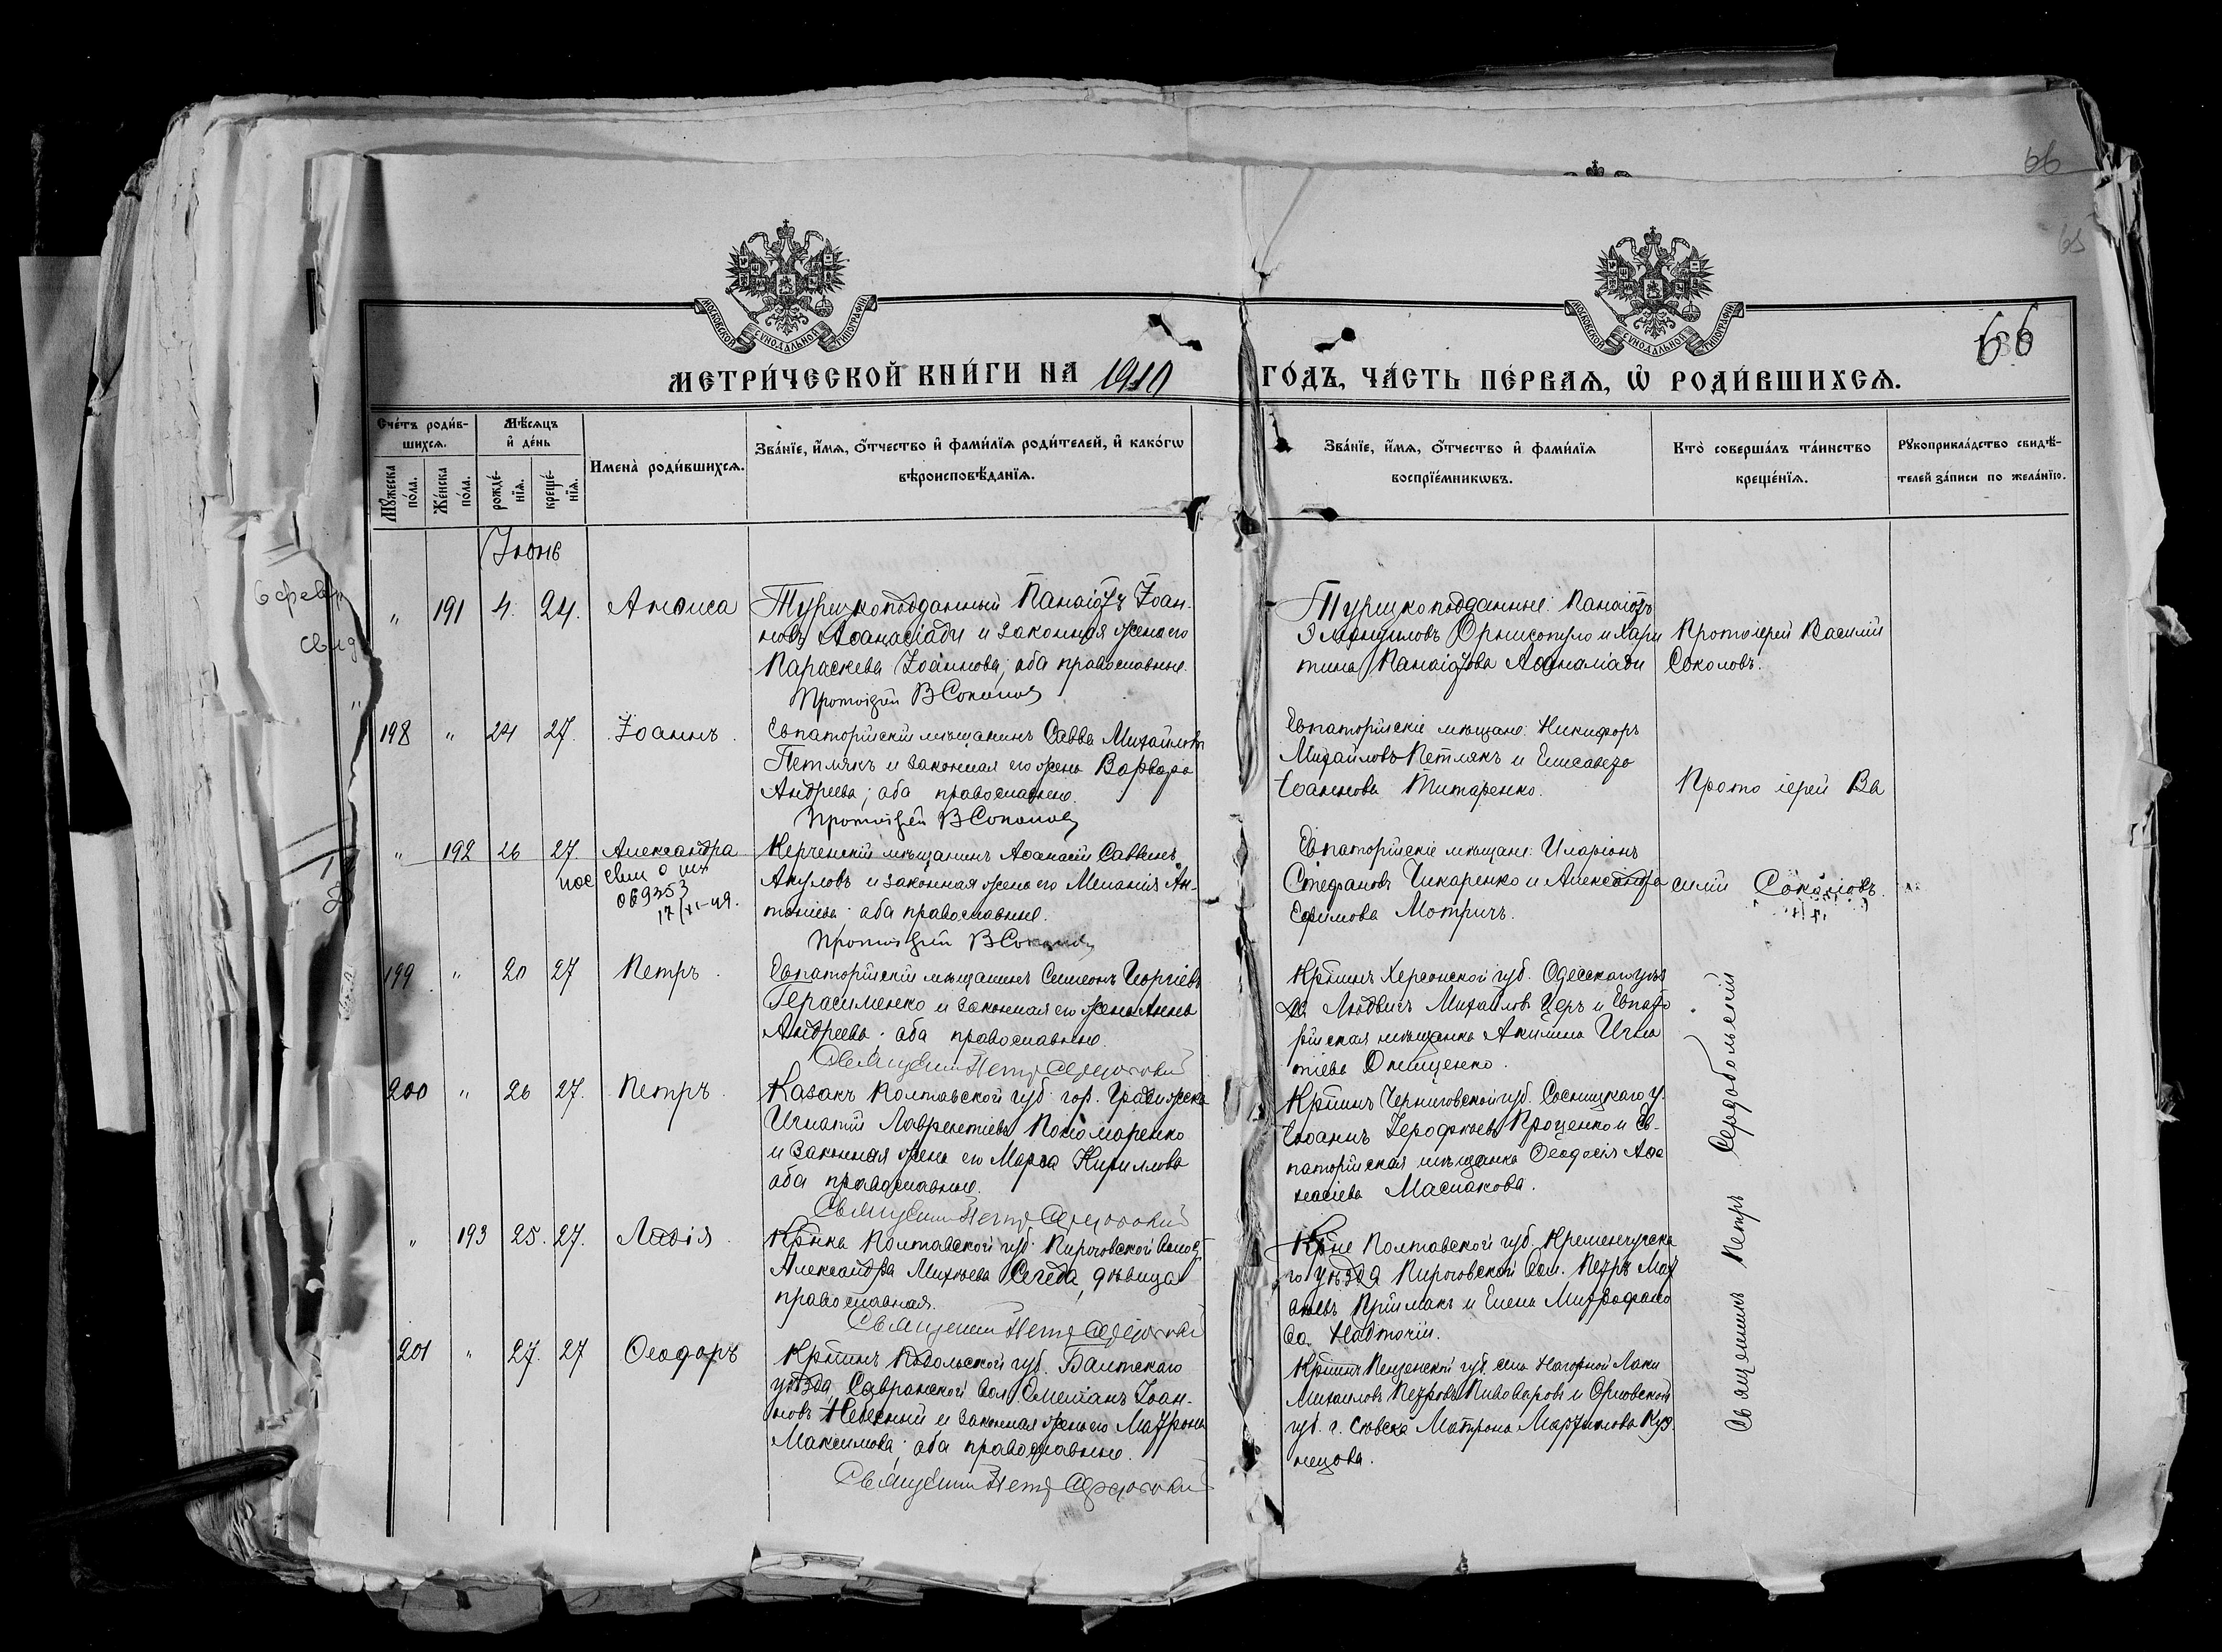 66
65
66
МОСКОВСКОЙ СѴНОДАЛЬНОЙ ТИПОГРАФІИ
МОСКОВСКОЙ СѴНОДАЛЬНОЙ ТИПОГРАФІИ
МЕТРИ́ЧЕСКОЙ КНИ́ГИ НА 1910 ГО́ДЪ, ЧА́СТЬ ПЕ́РВАѦ, Ѡ҆ РОДИ́ВШИХСѦ.
Сче́тъ роди́в-
шихсѧ.
Мꙋ́жеска по́ла.
Же́нска по́ла.
Мѣ́сѧцъ
и҆ де́нь
рожде́-
нїѧ.
креще́-
нїѧ.
Имена̀ роди́вшихсѧ.
Зва́нїе, и҆́мѧ, ѻ҆́тчество и҆ фами́лїѧ роди́телей, и҆ како́гѡ
вѣроисповѣ́данїѧ.
Зва́нїе, и҆́мѧ, ѻ҆́тчество и҆ фами́лїѧ
воспрїе́мникѡвъ.
Кто̀ соверша́лъ та́инство
креще́нїѧ.
Рꙋкоприкла́дство свидѣ́-
телей за́писи по жела́нїю.
Іюнь
" 191 4. 24. Анѳиса
Турецкоподданный Панаіотъ Іоан-
новъ Аѳанасіади и законная жена его
Параскева Іоаннова, оба православные.
Протоіерей В Соколовъ
Турецкоподданные: Панаіотъ
Эммануиловъ и Хари
тина Панаіотова Аѳанасіади
Протоіерей Василій
Соколовъ.
198 " 24 27. Іоаннъ.
Евпаторійскій мѣщанинъ Савва Михайловъ
Петлякъ и законная его жена Варвара
Андреева; оба православные.
Протоіерей В Соколовъ
Евпаторійскіе мѣщане: Никифоръ
Михайловъ Петлякъ и Елисавета
Іоаннова Титаренко.
Протоіерей Ва
" 192 26 27. Александра
069353
17/XI-49.
Керченскій мѣщанинъ Аѳанасій Саввинъ
Акуловъ и законная жена его Меланія Ан-
тоніева; оба православные.
Протоіерей В Соколовъ
Евпаторійскіе мѣщане: Иларіонъ
Стефановъ Чикаренко и Александра
Ефимова Мотричъ.
силій Соколовъ.
199 " 20 27 Петръ.
Евпаторійскій мѣщанинъ Симеонъ Георгіевъ
Герасименко и законная его жена Анна
Андреева; оба православные.
Священникъ Петръ Сердобольскій
Кр̃тинъ Херсонской губ. Одесскаго уѣз
да Людвигъ Михайловъ Церъ и Евпато
рійская мѣщанка Акилина Игна
тіева Онищенко.
200 " 26 27. Петръ.
Казакъ Полтавской губ. гор. Градижска
Игнатій Лаврентіевъ Пономаренко
и законная жена его Марѳа Кириллова
оба православные.
Священникъ Петръ Сердобольскій
Кр̃тинъ Черниговской губ. Сосницкаго у.
Іоаннъ Іероѳеевъ Проценко и Ев-
паторійская мѣщанка Ѳеодосія Аѳа
насіева Маслакова.
" 193 25. 27. Лидія.
Кр̃тка Полтавской губ. Пироговской волос.
Александра Михѣева Сегеда, дѣвица
православная.
Священникъ Петръ Сердобольскій
Кр̃тне Полтавской губ. Кременчугска
го уѣзда Пироговской вол. Петръ Мат
ѳеевъ Прiймакъ и Елена Митрофано
ва Надточій.
201 " 27. 27 Ѳеодоръ
Кр̃тинъ Подольской губ. Балтскаго
уѣзда, Савранской вол. Емеліанъ Іоан-
новъ Небесный и законная жена его Матрона
Максимова; оба православные.
Священникъ Петръ Сердобольскій
Кр̃тинъ Пензенской губ. села Нагорной Лаки
Михаилъ Петровъ Пивоваровъ и Орловской
губ. г. Сѣвска Матрона Мартинова Куз-
нецова.
Священникъ Петръ Сердобольскій
6 февр
свид